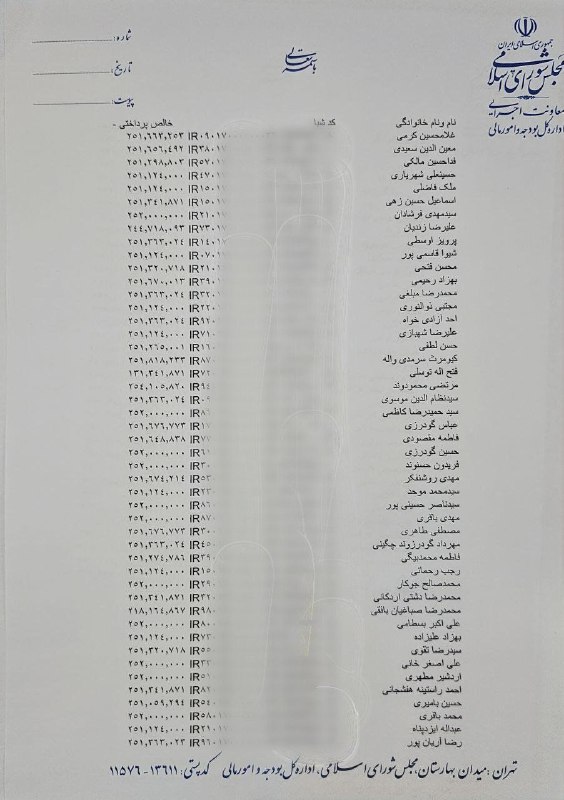 جمهوری اسلامی ایران
مجلس شورای اسلامی
معاونت اجرایی
اداره کل بودجه و امور مالی
باسمه تعالی
شماره:
تاریخ:
پیوست:
نام ونام خانوادگی کد شبا خالص پرداختی -
غلامحسین کرمی IR۰۹۰۱۷۰ ۲۵۱,۶۶۳,۲۵۳
معین الدین سعیدی IR۳۸۰۱۷ ۲۵۱,۶۵۶,۴۹۲
فداحسین مالکی IR۵۷۰۱ ۲۵۱,۲۹۸,۸۰۳
حسینعلی شهریاری IR۴۷۰۱ ۲۵۱,۱۲۴,۰۰۰
ملک فاضلی IR۱۵۰۱ ۲۵۱,۱۲۴,۰۰۰
اسماعیل حسین زهی IR۱۵۰۱ ۲۵۱,۳۴۱,۸۷۱
سیدمهدی فرشادان IR۲۱۰۱ ۲۵۲,۰۰۰,۰۰۰
علیرضا زندیان IR۷۳۰۱۷ ۲۴۴,۷۱۸,۰۹۳
پرویز اوسطی IR۱۴۰۱۷ ۲۵۱,۳۶۳,۰۲۴
شیوا قاسمی پور IR۰۷۰۱ ۲۵۱,۱۲۴,۰۰۰
محسن فتحی IR۲۱۰۱ ۲۵۱,۳۲۰,۷۱۸
بهزاد رحیمی IR۳۹۰۱ ۲۵۱,۶۷۰,۰۱۳
محمدرضا مبلغی IR۳۲۰۱ ۲۵۱,۳۶۳,۰۲۴
مجتبی ذوالنوری IR۲۲۰ ۲۵۱,۱۲۴,۰۰۰
احد آزادی خواه IR۹۲۰ ۲۵۱,۳۶۳,۰۲۴
علیرضا شهبازی IR۷۱۰ ۲۵۱,۱۲۴,۰۰۰
حسن لطفی IR۱۶۰ ۲۵۱,۲۶۵,۰۰۱
کیومرث سرمدی واله IR۸۷۰ ۲۵۱,۸۱۸,۲۳۳
فتح اله توسلی IR۷۲۰ ۱۳۱,۳۴۱,۸۷۱
مرتضی محمودوند IR۹۴ ۲۵۴,۱۰۵,۸۲۰
سیدنظام الدین موسوی IR۰۹ ۲۵۱,۳۶۳,۰۲۴
سید حمیدرضا کاظمی IR۸ ۲۵۲,۰۰۰,۰۰۰
عباس گودرزی IR۱ ۲۵۱,۶۷۶,۷۷۳
فاطمه مقصودی IR۷ ۲۵۱,۶۴۸,۸۳۸
حسین گودرزی IR۶۱ ۲۵۲,۰۰۰,۰۰۰
فریدون حسنوند IR۳۰ ۲۵۲,۰۰۰,۰۰۰
مهدی روشنفکر IR۵۳ ۲۵۱,۶۷۴,۲۱۴
سیدمحمد موحد IR۲ ۲۵۱,۱۲۴,۰۰۰
سیدناصر حسینی پور IR۸۶۰ ۲۵۲,۰۰۰,۰۰۰
مهدی باقری IR۸۷۰ ۲۵۲,۰۰۰,۰۰۰
مصطفی طاهری IR۳۰ ۲۵۱,۶۷۶,۷۷۳
مهرداد گودرزوند چگینی IR۴۵۰ ۲۵۱,۳۶۳,۰۲۴
فاطمه محمدبیگی IR۳۹۰ ۲۵۱,۲۷۴,۷۸۶
رجب رحمانی IR۱۵۰ ۲۵۱,۱۲۴,۰۰۰
محمدصالح جوکار IR۲۹۰ ۲۵۲,۰۰۰,۰۰۰
محمدرضا دشتی اردکانی IR۳۲۰ ۲۵۱,۳۴۱,۸۷۱
محمدرضا صباغیان بافقی IR۹۸۰ ۲۱۸,۱۶۴,۸۶۷
علی اکبر بسطامی IR۸۰۰ ۲۵۲,۰۰۰,۰۰۰
بهزاد علیزاده IR۷۳ ۲۵۱,۱۲۴,۰۰۰
سیدرضا تقوی IR۵۵ ۲۵۱,۳۲۰,۷۱۸
علی اصغر خانی IR۳۳ ۲۵۲,۰۰۰,۰۰۰
اردشیر مطهری IR۵۱ ۲۵۲,۰۰۰,۰۰۰
احمد راستینه هفشجانی IR۸۲ ۲۵۱,۳۴۱,۸۷۱
حسین بامیری IR۵۴۰ ۲۵۱,۰۵۹,۲۹۴
محمد باقری IR۵۸۰۱ ۲۵۲,۰۰۰,۰۰۰
عبداله ایزدپناه IR۲۱۰۱۷ ۲۵۱,۱۲۴,۰۰۰
رضا آریان پور IR۹۶۰۱۷ ۲۵۱,۳۶۳,۰۲۳
تهران: میدان بهارستان، مجلس شورای اسلامی، اداره کل بودجه و امور مالی کد پستی: ۱۳۶۱۱-۱۱۵۷۶